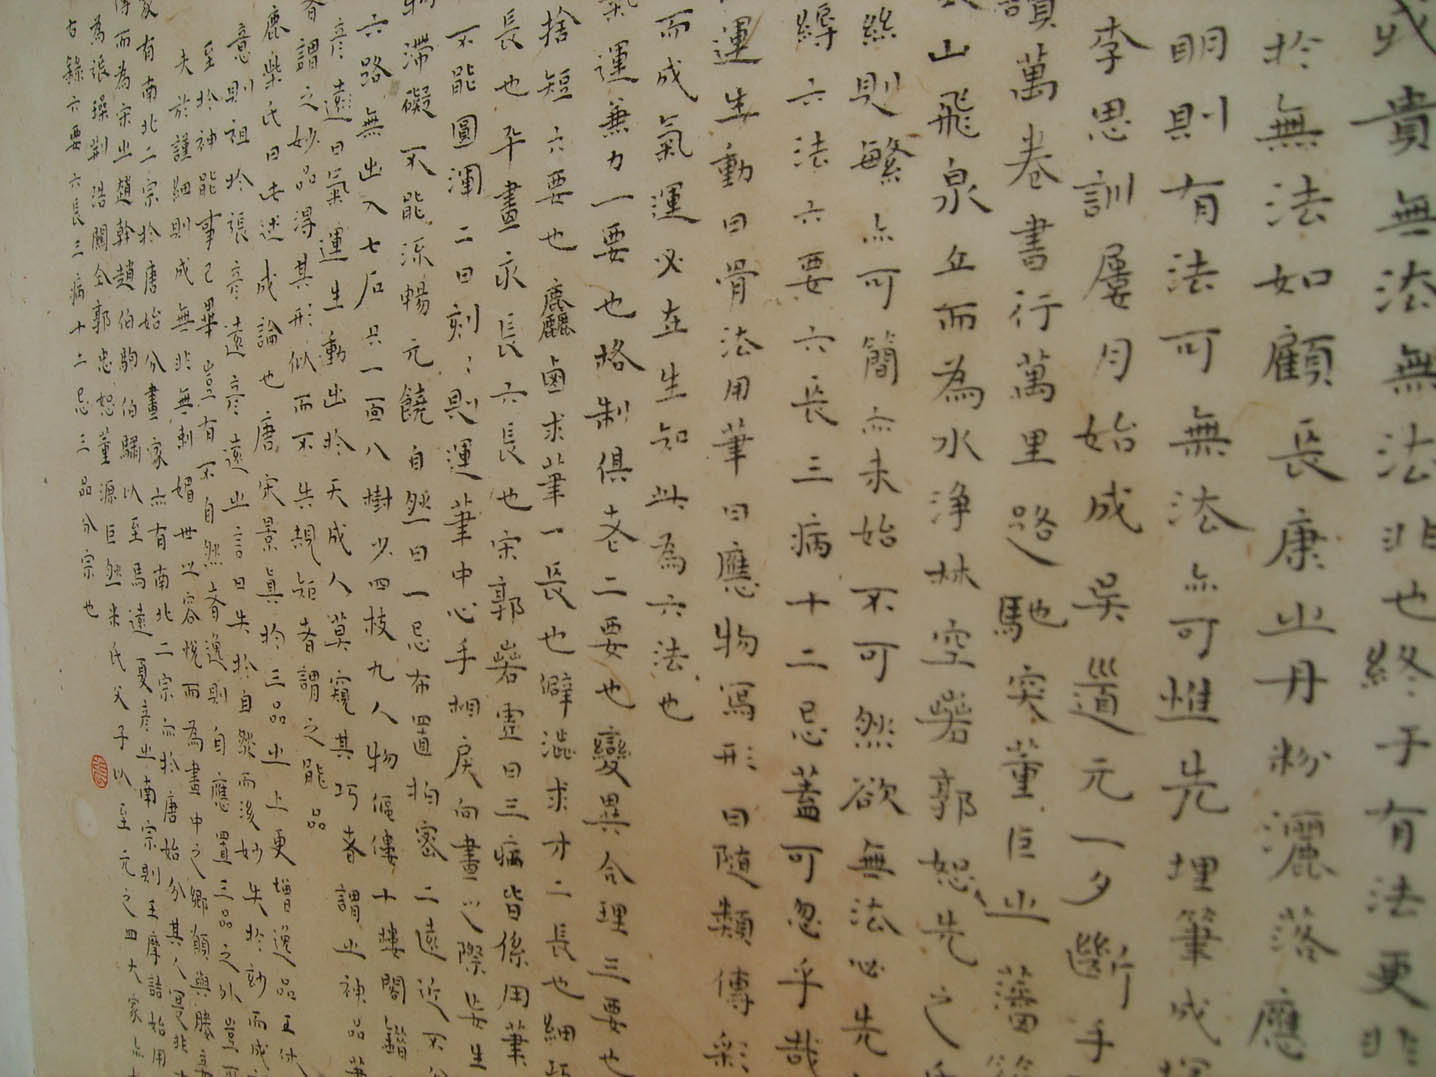 貴無法無法非也終于有法更非
於無法如顧長康之丹粉灑落應
明則有法可無法亦可惟先埋筆成
李思訓屢月始成吳道元一夕斷手
讀萬卷書行萬里路馳突董巨之藩
山飛泉丘而為水淨林空與郭恕先之
絲則繁亦可簡亦未始不可然欲無法必先
六法六要六長三病十二忌蓋可忽乎哉
運生動曰骨法用筆曰應物寫形曰隨類傅彩
而成氣運必在生知此為六法也
氣運兼力一要也格制俱老二要也變異合理三要也
捨短六要也麤鹵求筆一長也僻澁求才二長也細巧
長也平畫求長六長也宋郭若虛曰三病皆係用筆
不能圓渾二曰刻刻則運筆中心手相戾向畫之際妄生
物滯礙不能流暢元饒自然曰一忌布置拍密二遠近不分
六路無出入七石只一面八樹少四枝九人物傴僂十樓閣錯
彥遠曰氣運生動出於天成人莫窺其巧者謂之神品
者謂之妙品得其形似而不失規矩者謂之能品
鹿柴氏曰此述成論也唐宋景真於三品之上更增逸品王休
意則祖於張彥遠彥遠之言曰失於自然而後妙失於妙而成
至於神能事已畢豈有不自然者逸則自應置三品之外豈可
夫於謹細則成無非無刺媚世之容悅而為畫中之鄉愿與媵妾
家有南北二宗於唐始分畫家亦有南北二宗亦於唐始分其人實非
傳而為宋之趙幹趙伯駒伯驌以至馬遠夏彥之南宗則王摩詰始用
為張璪荊浩關仝郭忠恕董源巨然米氏父子以至元之四大家亦
古錄六要六長三病十二忌三品分宗也